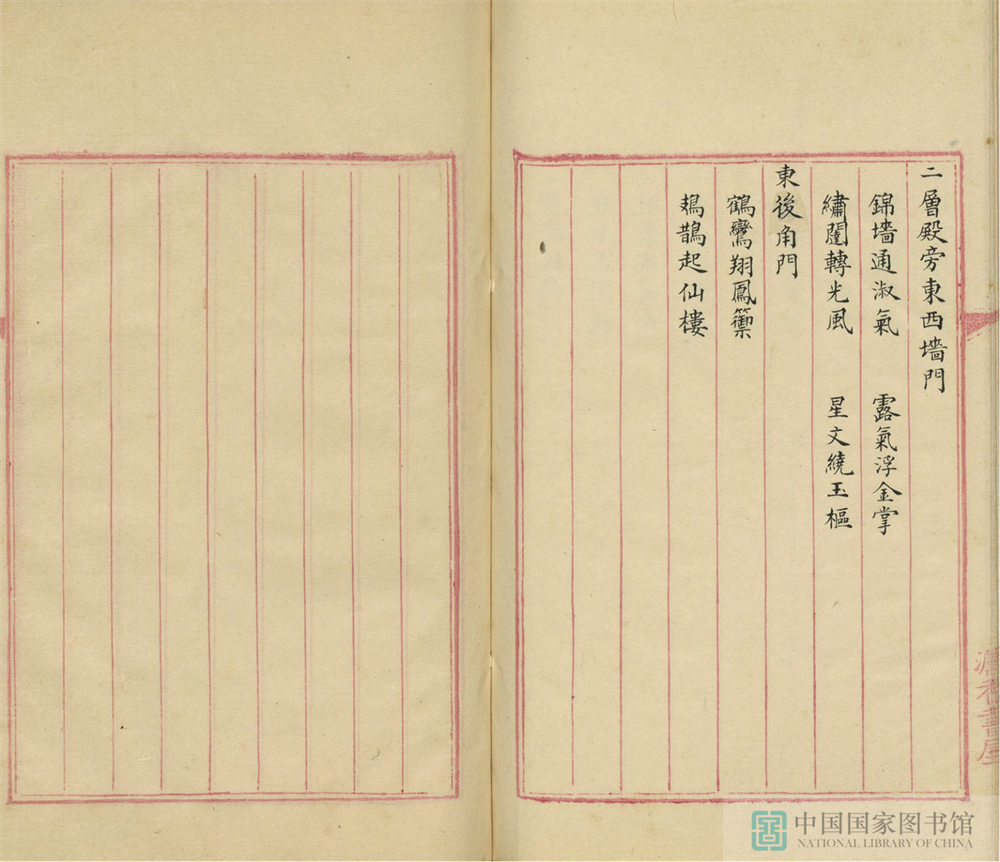 二層殿旁東西墻門
錦墻通淑氣　露氣浮金掌
繡闥轉光風　星文繞玉樞
東後角門
鶴鸞翔鳳籞
鳷鵲起仙樓
書屋
中国国家图书馆
NATIONAL LIBRARY OF CHINA